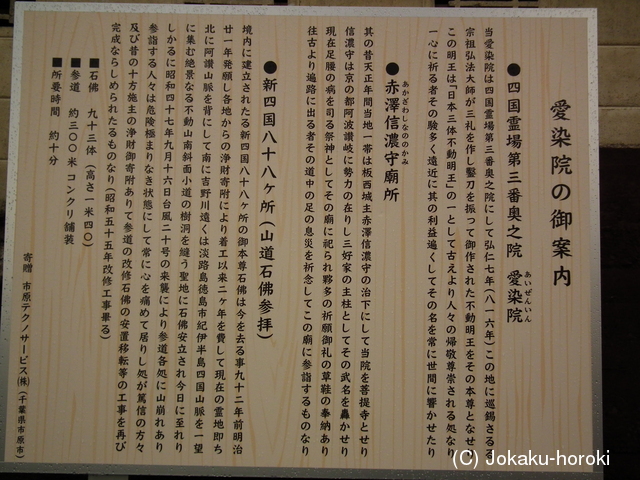 愛染院の御案内
●四国霊場第三番奥之院 愛染院
あいぜんいん
当愛染院は四国霊場第三番奥之院にして弘仁七年(八一六年)この地に巡錫さるる
宗祖弘法大師が三礼を作し鑿刀を振って御作された不動明王をその本尊となせり
この明王は「日本三体不動明王」の一として古えより人々の帰敬尊崇される処なり
一心に祈る者その験多く遠近に其の利益遍くしてその名を常に世間に響かせたり
●赤澤信濃守廟所
あかざわしなののかみ
其の昔天正年間当地一帯は板西城主赤澤信濃守の治下にして当院を菩提寺とせり
信濃守は京の都阿波讃岐に勢力の在りし三好家の主柱としてその武名を轟かせり
現在足腰の病を司る祭神としてその廟に祀られ夥多の祈願御礼の草鞋の奉納あり
往古より遍路に出る者その道中の足の息災を祈念してこの廟に参詣するものなり
●新四国八十八ヶ所(山道石佛参拝)
境内に建立されたる新四国八十八ヶ所の御本尊石佛は今を去る事九十二年前明治
廿一年発願し各地からの浄財寄附により着工以来二ヶ年を費して現在の霊地即ち
北に阿讃山脈を背にして南に吉野川遠くは淡路島徳島市紀伊半島四国山脈を一望
に集む絶景なる不動山南斜面小道の樹洞を縫う聖地に石佛安立され今日に至れり
しかるに昭和四十七年九月十六日台風二十号の来襲により参道各処に山崩れあり
参詣する人々は危険極まりなき状態にして常に心を痛めて居りし処が篤信の方々
及び昔の十方施主の浄財御寄附ありて参道の改修石佛の安置移転等の工事を再び
完成ならしめられたるものなり(昭和五十五年改修工事畢る)
■石佛 九十三体(高さ一米四〇)
■参道 約三〇〇米コンクリ舗装
■所要時間 約十分
寄贈 市原テクノサービス㈱(千葉県市原市)
(C) Jokaku-horoki